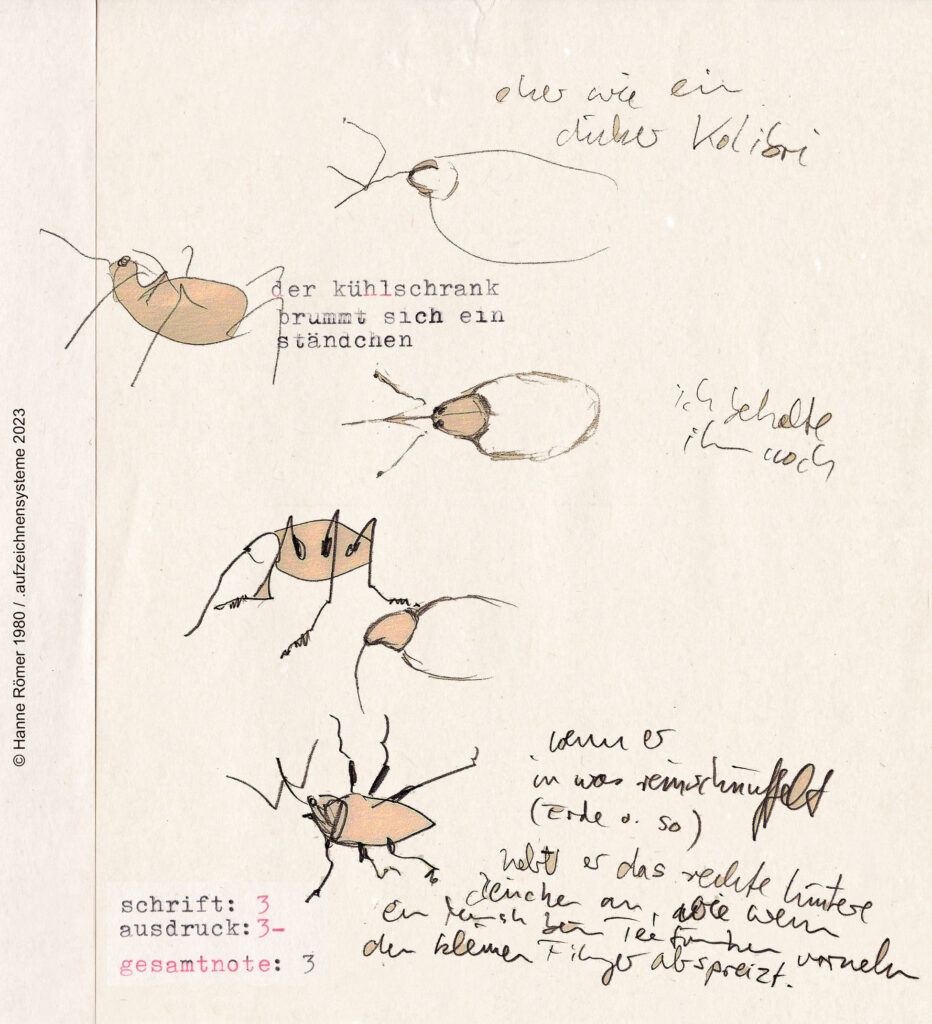 eher wie ein
dicker Kolibri
der kühlschrank
brummt sich ein
ständchen
ich behalte
ihn noch
wenn er
in was reinschnüffelt
(Erde o. so)
hebt er das rechte hintere
Beinchen an, wie wenn
ein Mensch beim Teetrinken vornehm
den kleinen Finger abspreizt.
schrift: 3
ausdruck: 3-
gesamtnote: 3
© Hanne Römer 1980 / .aufzeichnensysteme 2023